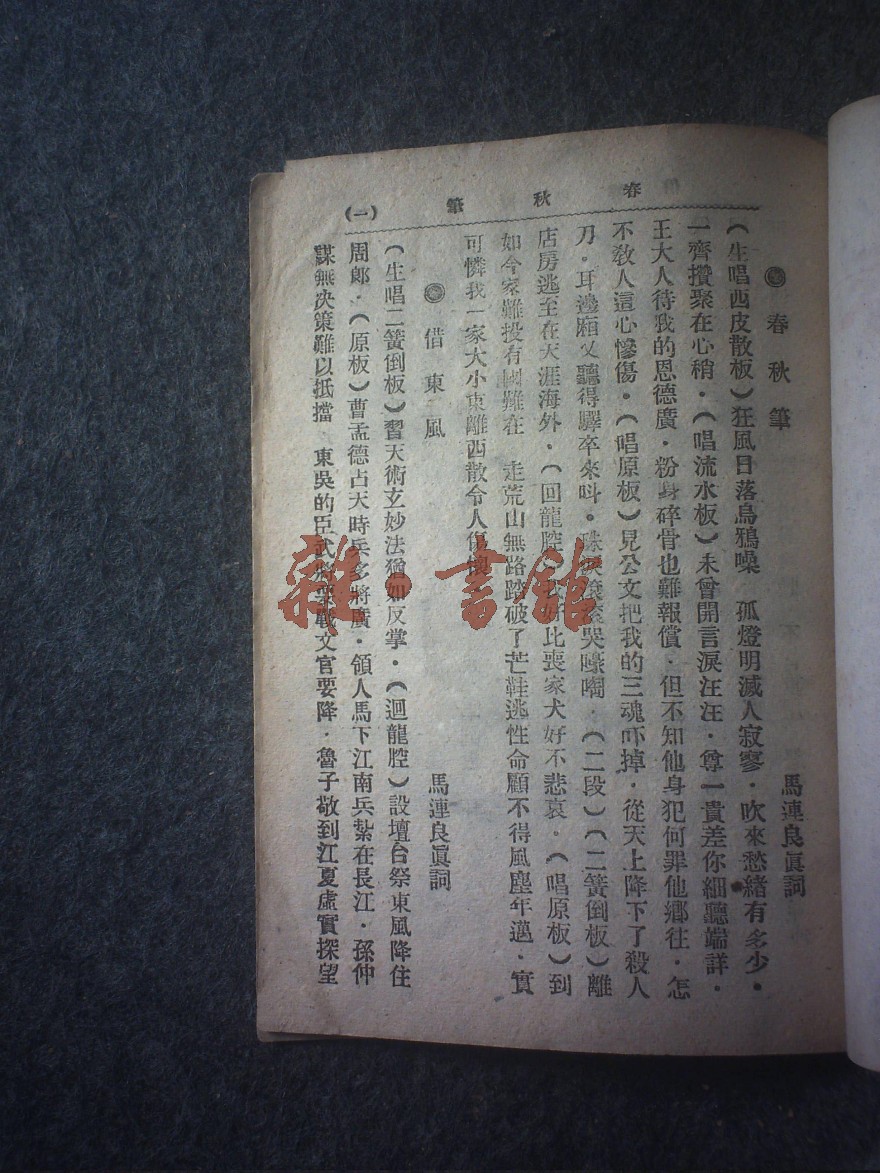 春秋筆
(一)
春秋筆
馬連良眞詞
(生唱西皮散板)狂風日落烏鴉噪 孤燈明滅人寂寥·吹來愁緒有多少·
一齊攢聚在心稍·(唱流水板)未曾開言淚汪汪·尊一貴差你細聽端詳·
王大人待我的恩德廣·粉身碎骨也難報償·但不知他身犯何罪他鄉往·怎
不敎人這心慘傷·(唱原板)見公文把我的三魂吓掉·從天上降下了殺人
刀·耳邊廂又聽得驛卒來呌·珠淚滾滾哭嚎啕·(二段)(二簧倒板)離
店房逃至在天涯海外·(回龍腔)好比喪家犬好不悲哀·(唱原板)到
如今家難投有國難在 走荒山無路踏破了芒鞋逃性命顧不得風塵年邁·實
可憐我一家大小東離西散令人傷懷
借東風
馬連良眞詞
(生唱二簧倒板)習天術玄妙法猶如反掌·(迴龍腔)設壇台祭東風降住
周郎·(原板)曹孟德占天時兵多將廣·領人馬下江南兵紮在長江·孫仲
謀無决策難以抵擋 東吳的臣武將要戰文官要降·魯子敬到江夏虛實探望
雜·書館